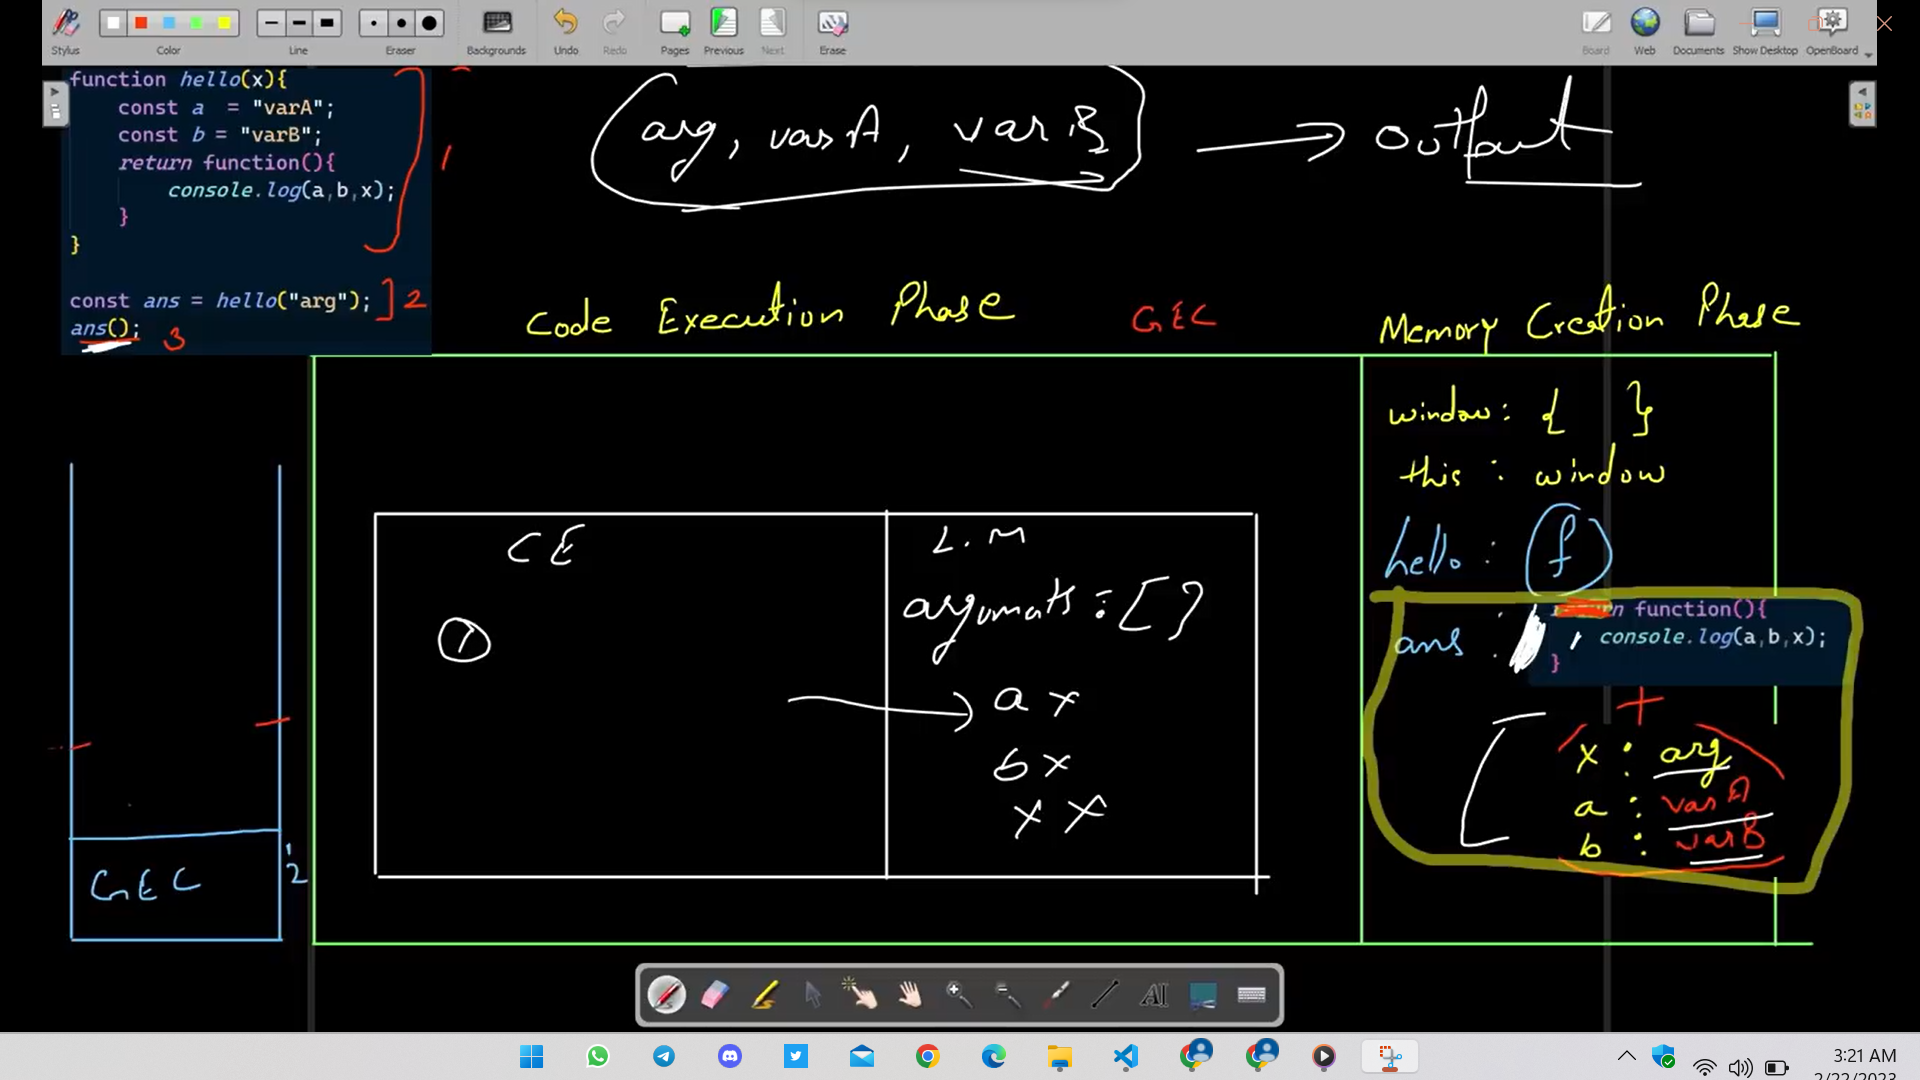 Stylus Color Line Eraser Backgrounds Undo Redo Pages Previous Next Erase Board Web Documents Show Desktop OpenBoard
function hello(x){
const a = "varA";
const b = "varB";
return function(){
console.log(a,b,x);
}
}
const ans = hello("arg");
ans();
1
2
3
arg, varA, varB → output
Code Execution Phase GEC Memory Creation Phase
window: { }
this : window
hello : f
ans :
function(){
console.log(a,b,x);
}
+
x : arg
a : varA
b : varB
CE
1
L.M
arguments : [ ]
a x
b x
x x
GEC
1
2
3:21 AM
2/22/2023